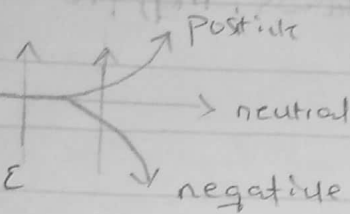 Positive
neutral
E
negative